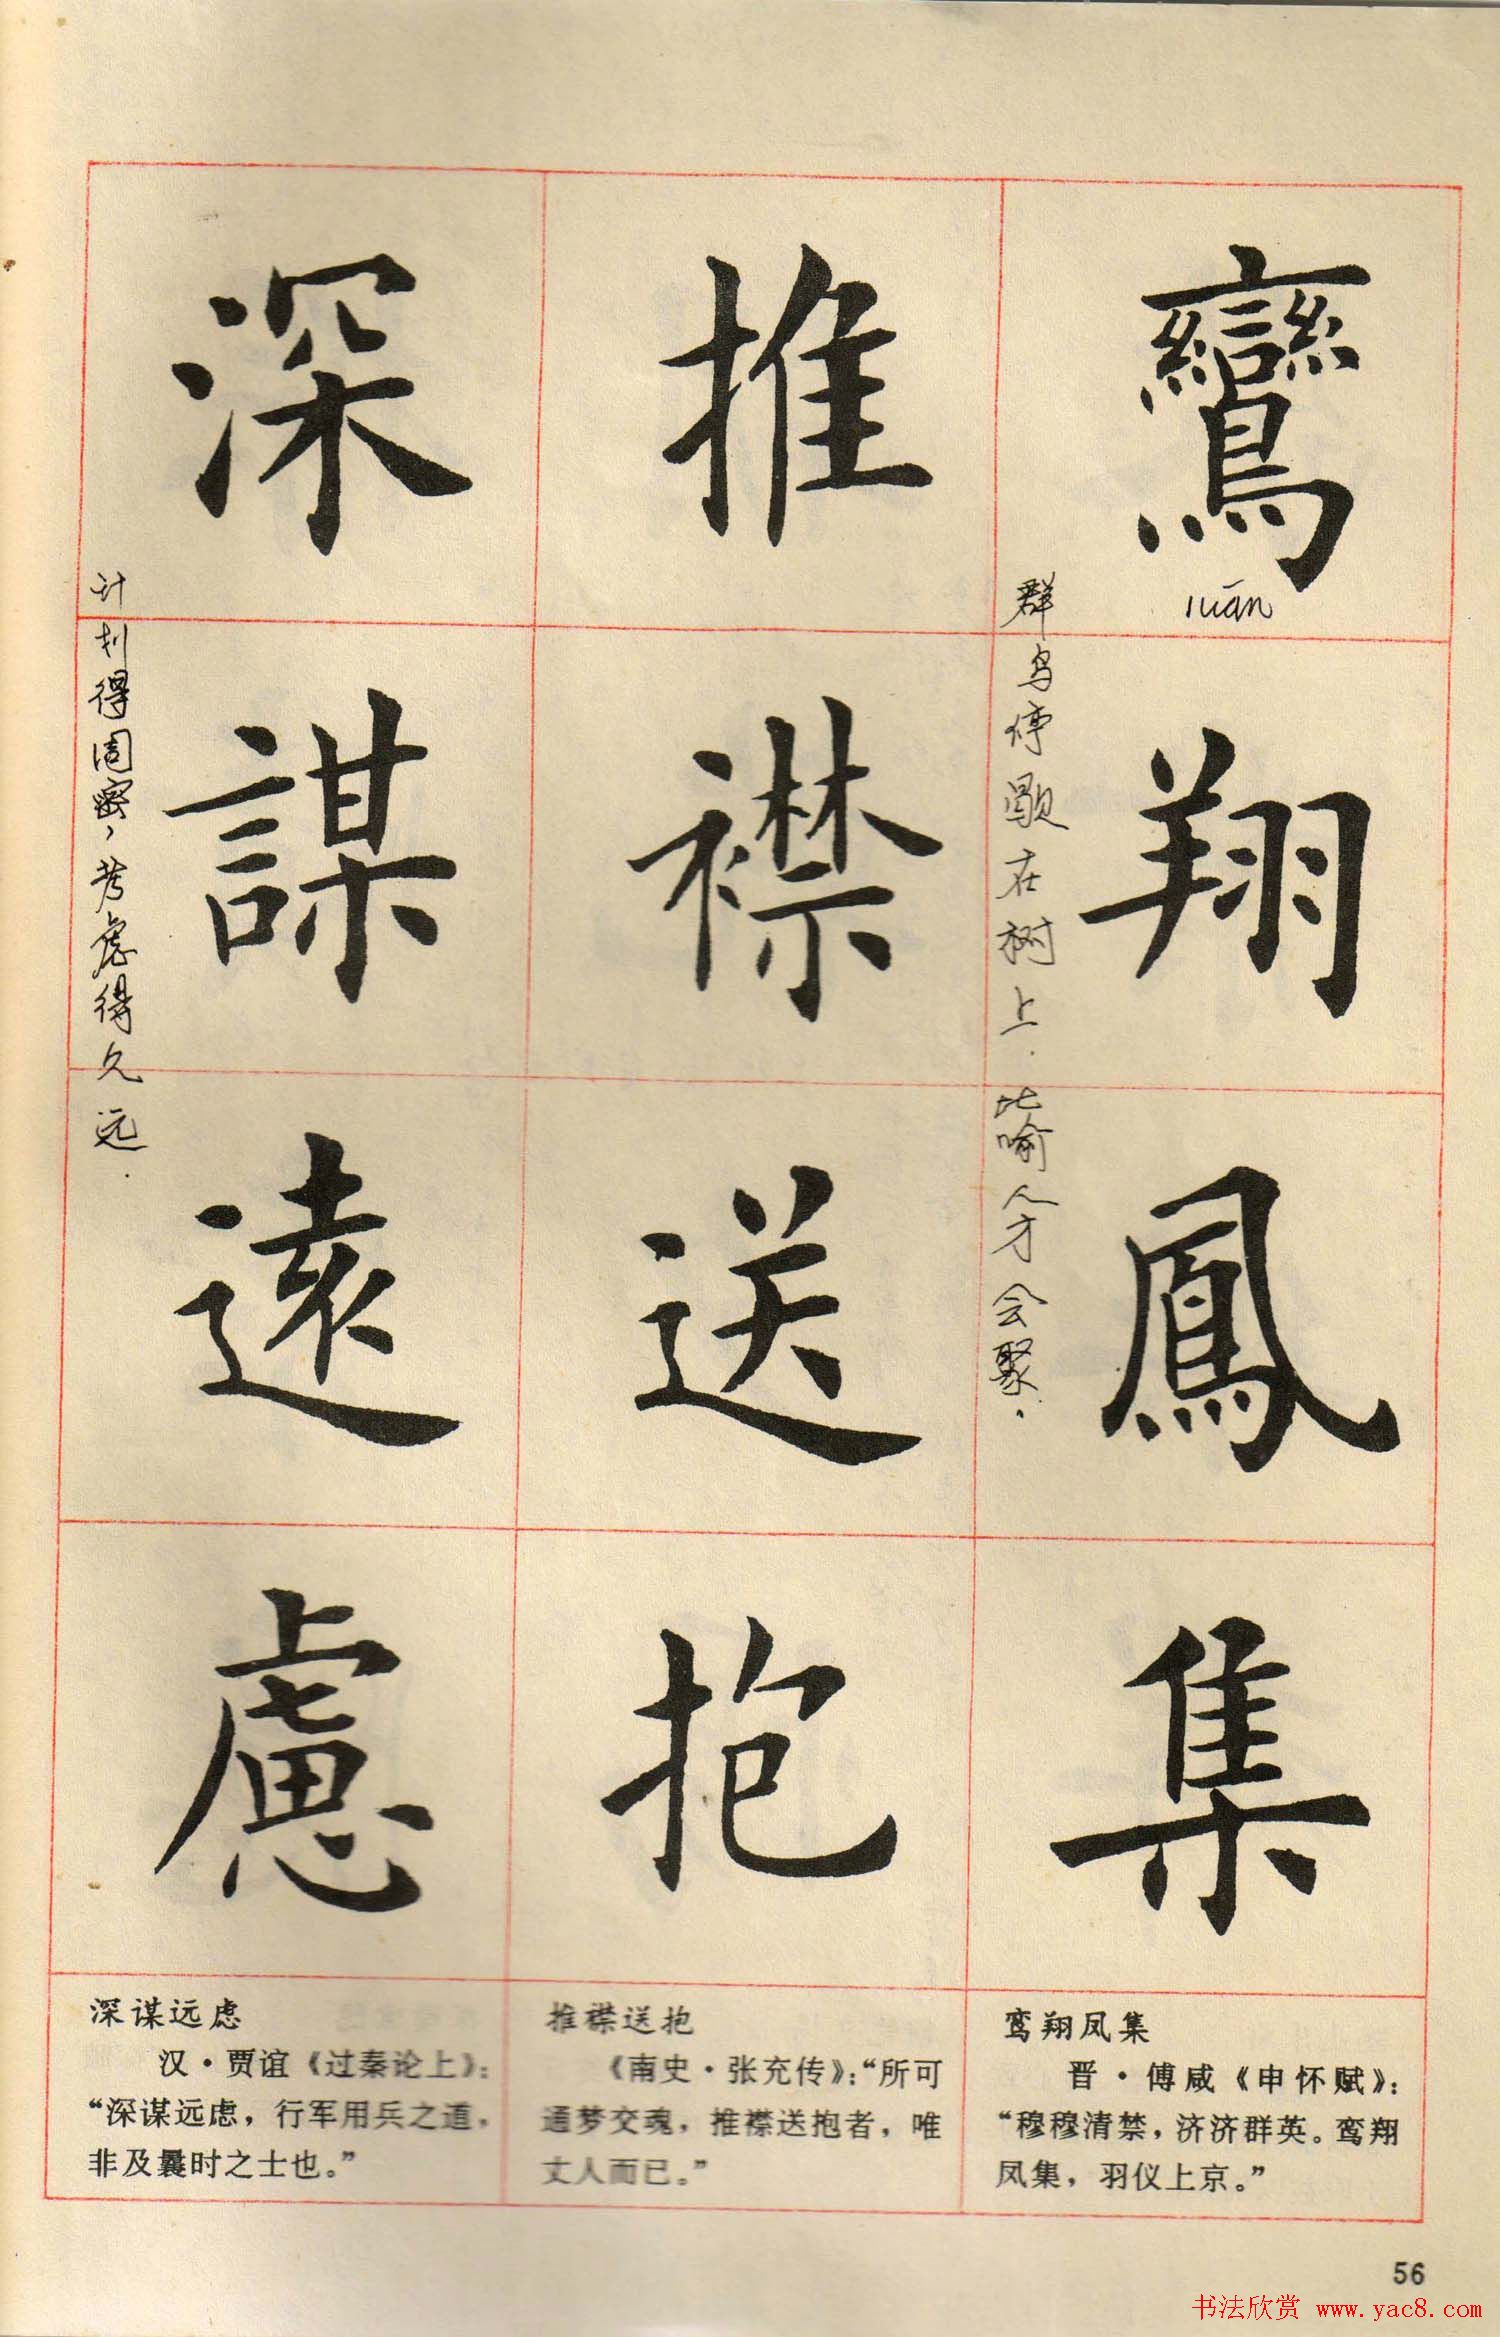 鸞翔鳳集
luān
群鸟停歇在树上.比喻人才会聚.
推襟送抱
深謀遠慮
计划得周密，考虑得久远.
鸾翔凤集
晋·傅咸《申怀赋》：
“穆穆清禁，济济群英。鸾翔
凤集，羽仪上京。”
推襟送抱
《南史·张充传》：“所可
通梦交魂，推襟送抱者，唯
丈人而已。”
深谋远虑
汉·贾谊《过秦论上》：
“深谋远虑，行军用兵之道，
非及曩时之士也。”
56
书法欣赏 www.yac8.com